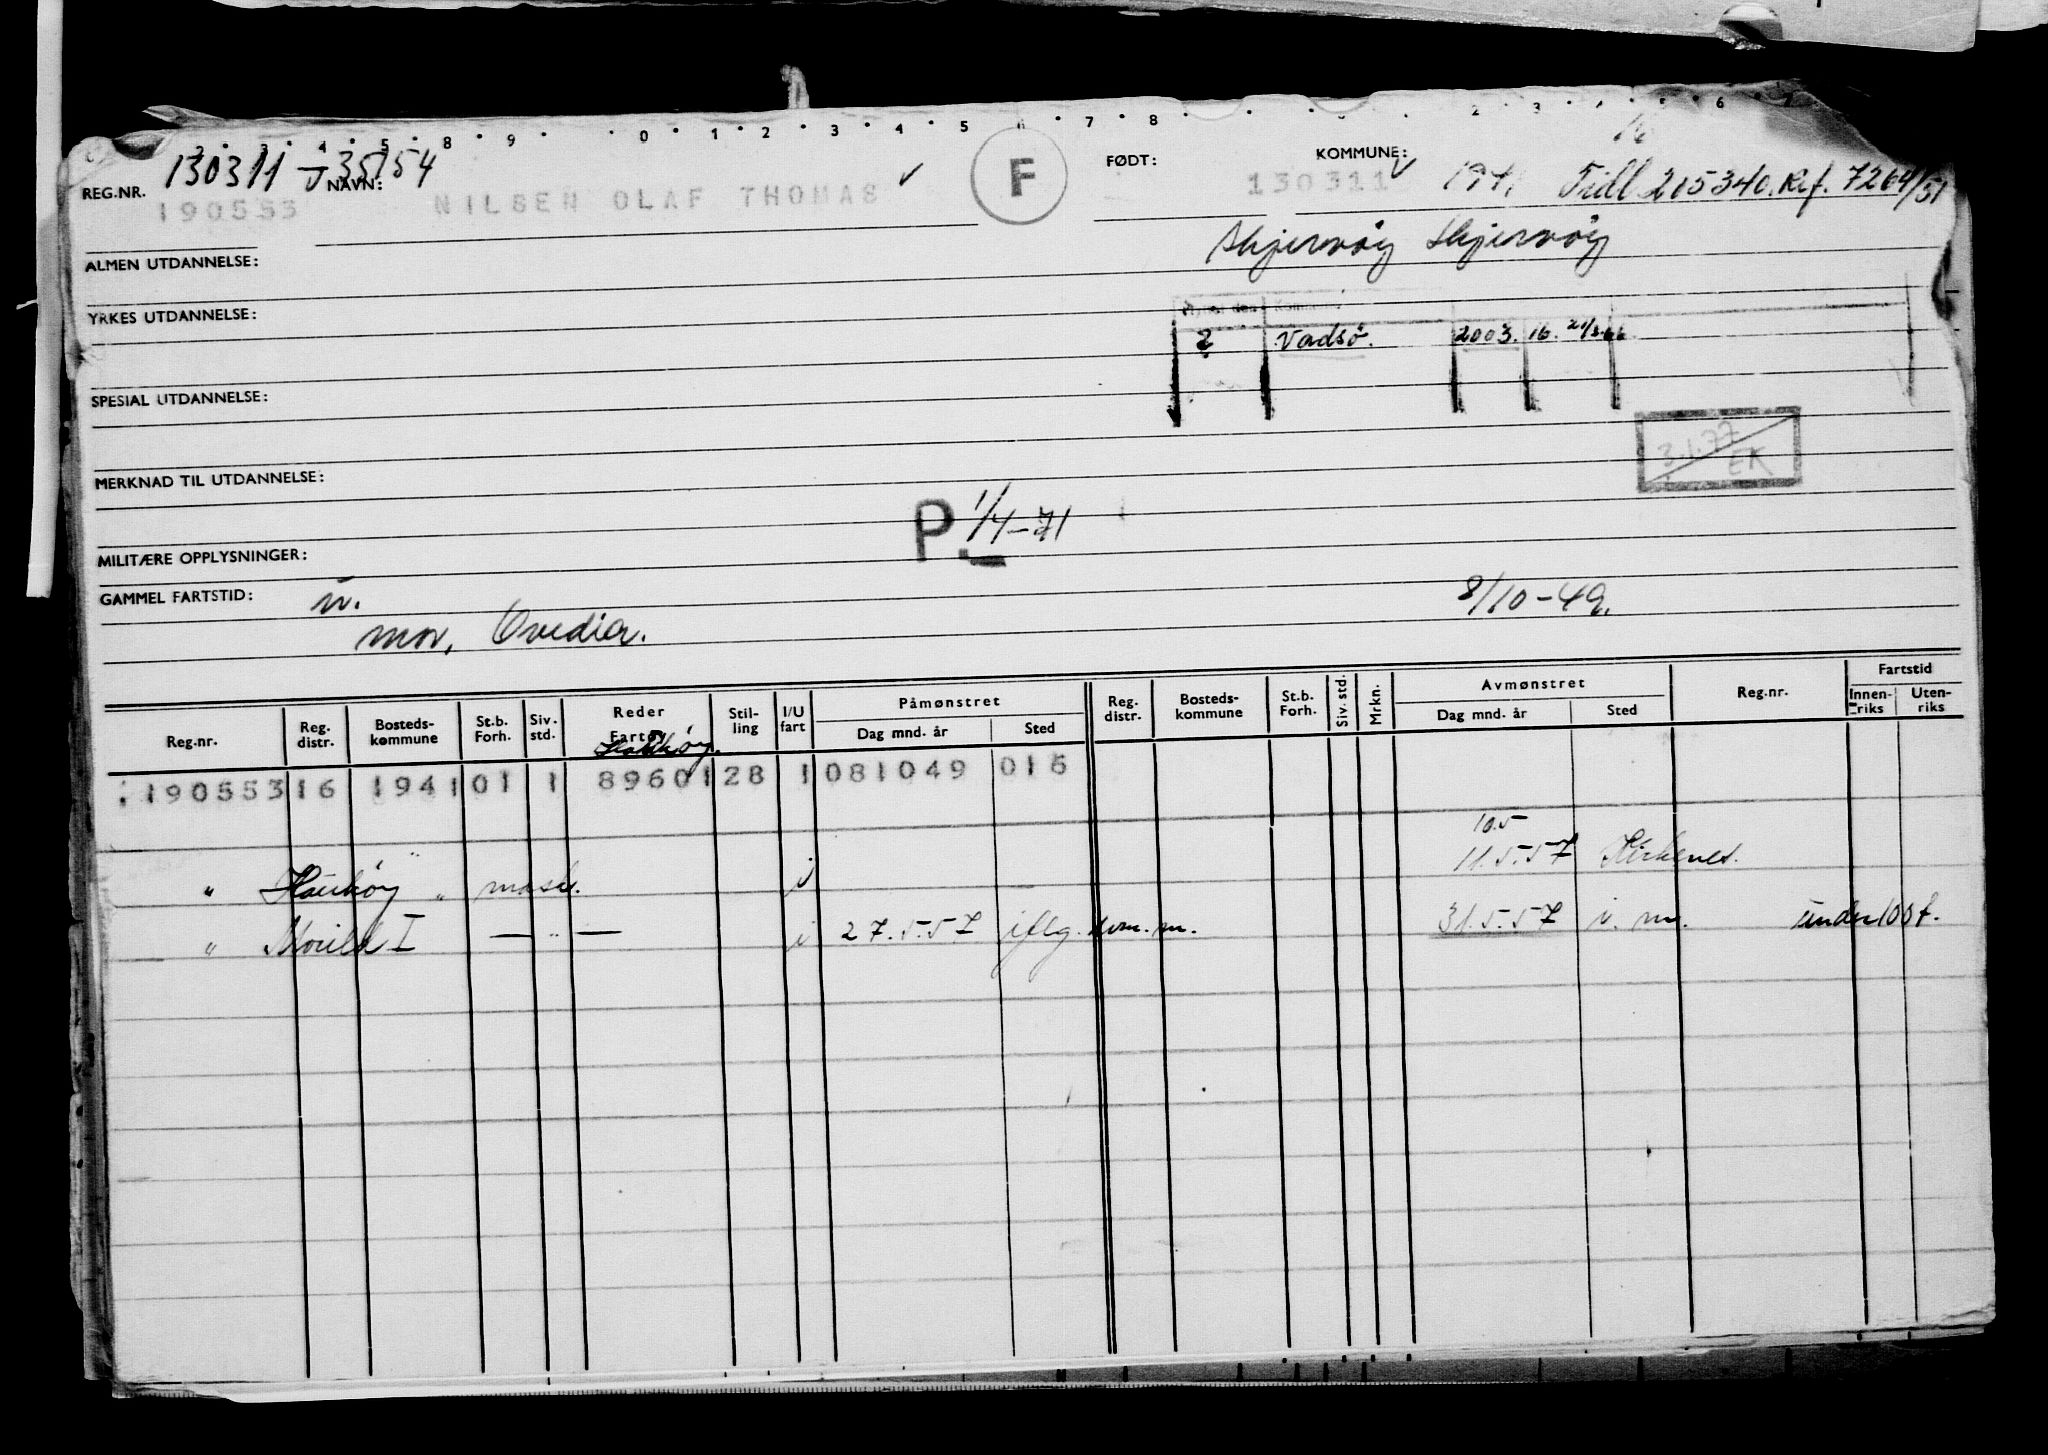 REG.NR. 130311 J 35154 NAVN: FØDT: KOMMUNE: 16
190553 NILSEN OLAF THOMAS F 130311 1941 Tidl 215340. Ref. 7264/51
Skjervøy Skjervøy
ALMEN UTDANNELSE:
YRKES UTDANNELSE:
2 Vadsø. 2003. 16.
SPESIAL UTDANNELSE:
3.1.77 EK
MERKNAD TIL UTDANNELSE:
P. 1/4-71
MILITÆRE OPPLYSNINGER:
GAMMEL FARTSTID: 8/10-49.
mor,
Reg.nr. Reg. distr. Bosteds- kommune St.b. Forh. Siv. std. Reder Fartøy Stil- ling I/U fart Påmønstret Dag mnd. år Sted Reg. distr. Bosteds- kommune St.b. Forh. Siv. std. Mrkn. Avmønstret Dag mnd. år Sted Reg.nr. Fartstid Innen- riks Uten- riks
Haukøy.
190553 16 1941 01 1 89601 28 1 081049 016
10.5
" Haukøy " mask. i 11.5.57 Kirkenes.
" Morild I — " — i 27.5.57 iflg. 31.5.57 under 100 t.